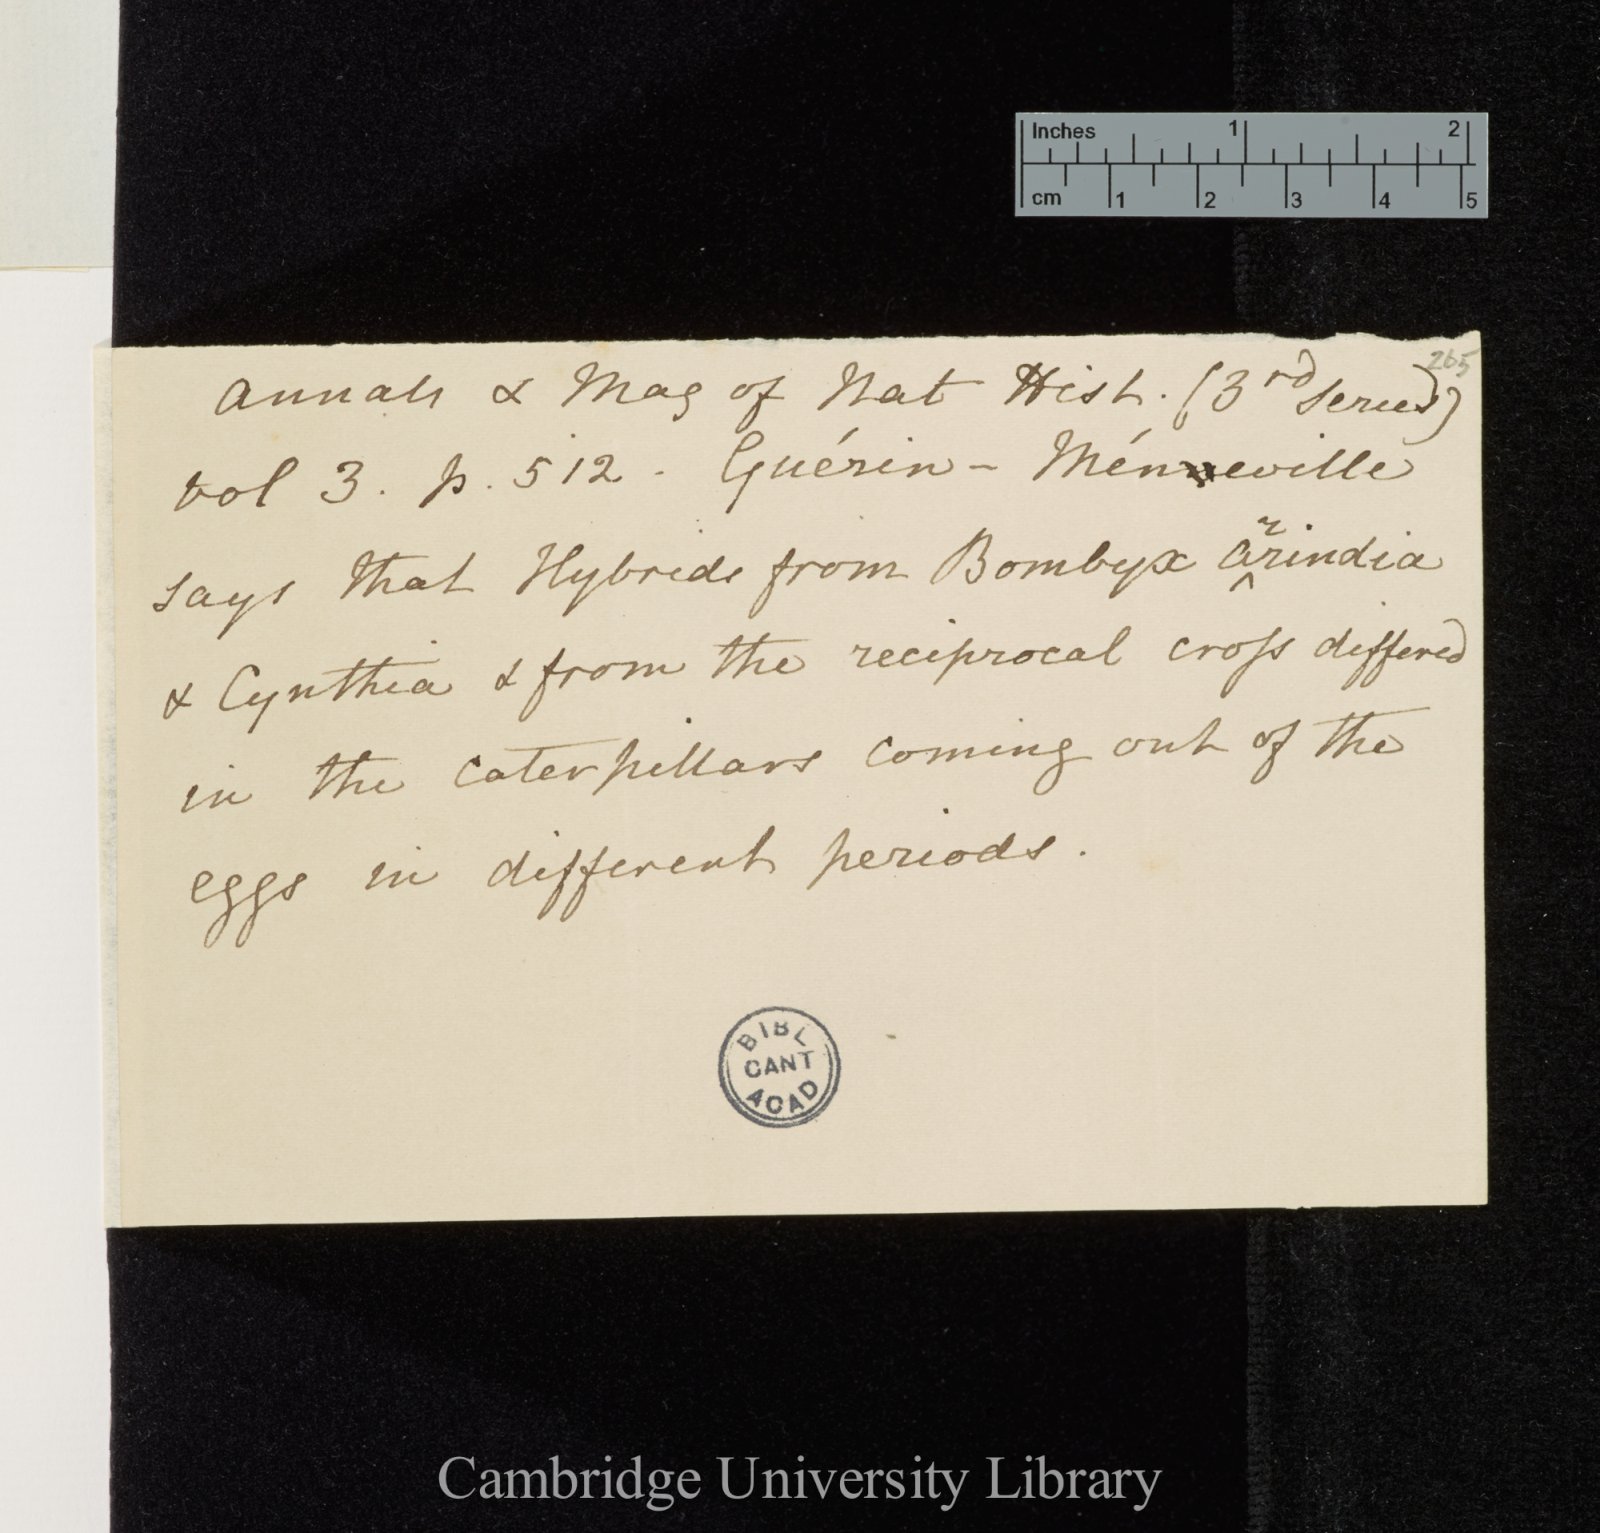 Inches 1 2
cm 1 2 3 4 5
265
Annals & Mag of Nat Hist. (3rd Series)
vol 3. p. 512. Guérin-Méneville
says that Hybrids from Bombyx Arrindia
& Cynthia & from the reciprocal cross differed
in the caterpillars coming out of the
eggs in different periods.
BIBL
CANT
ACAD
Cambridge University Library